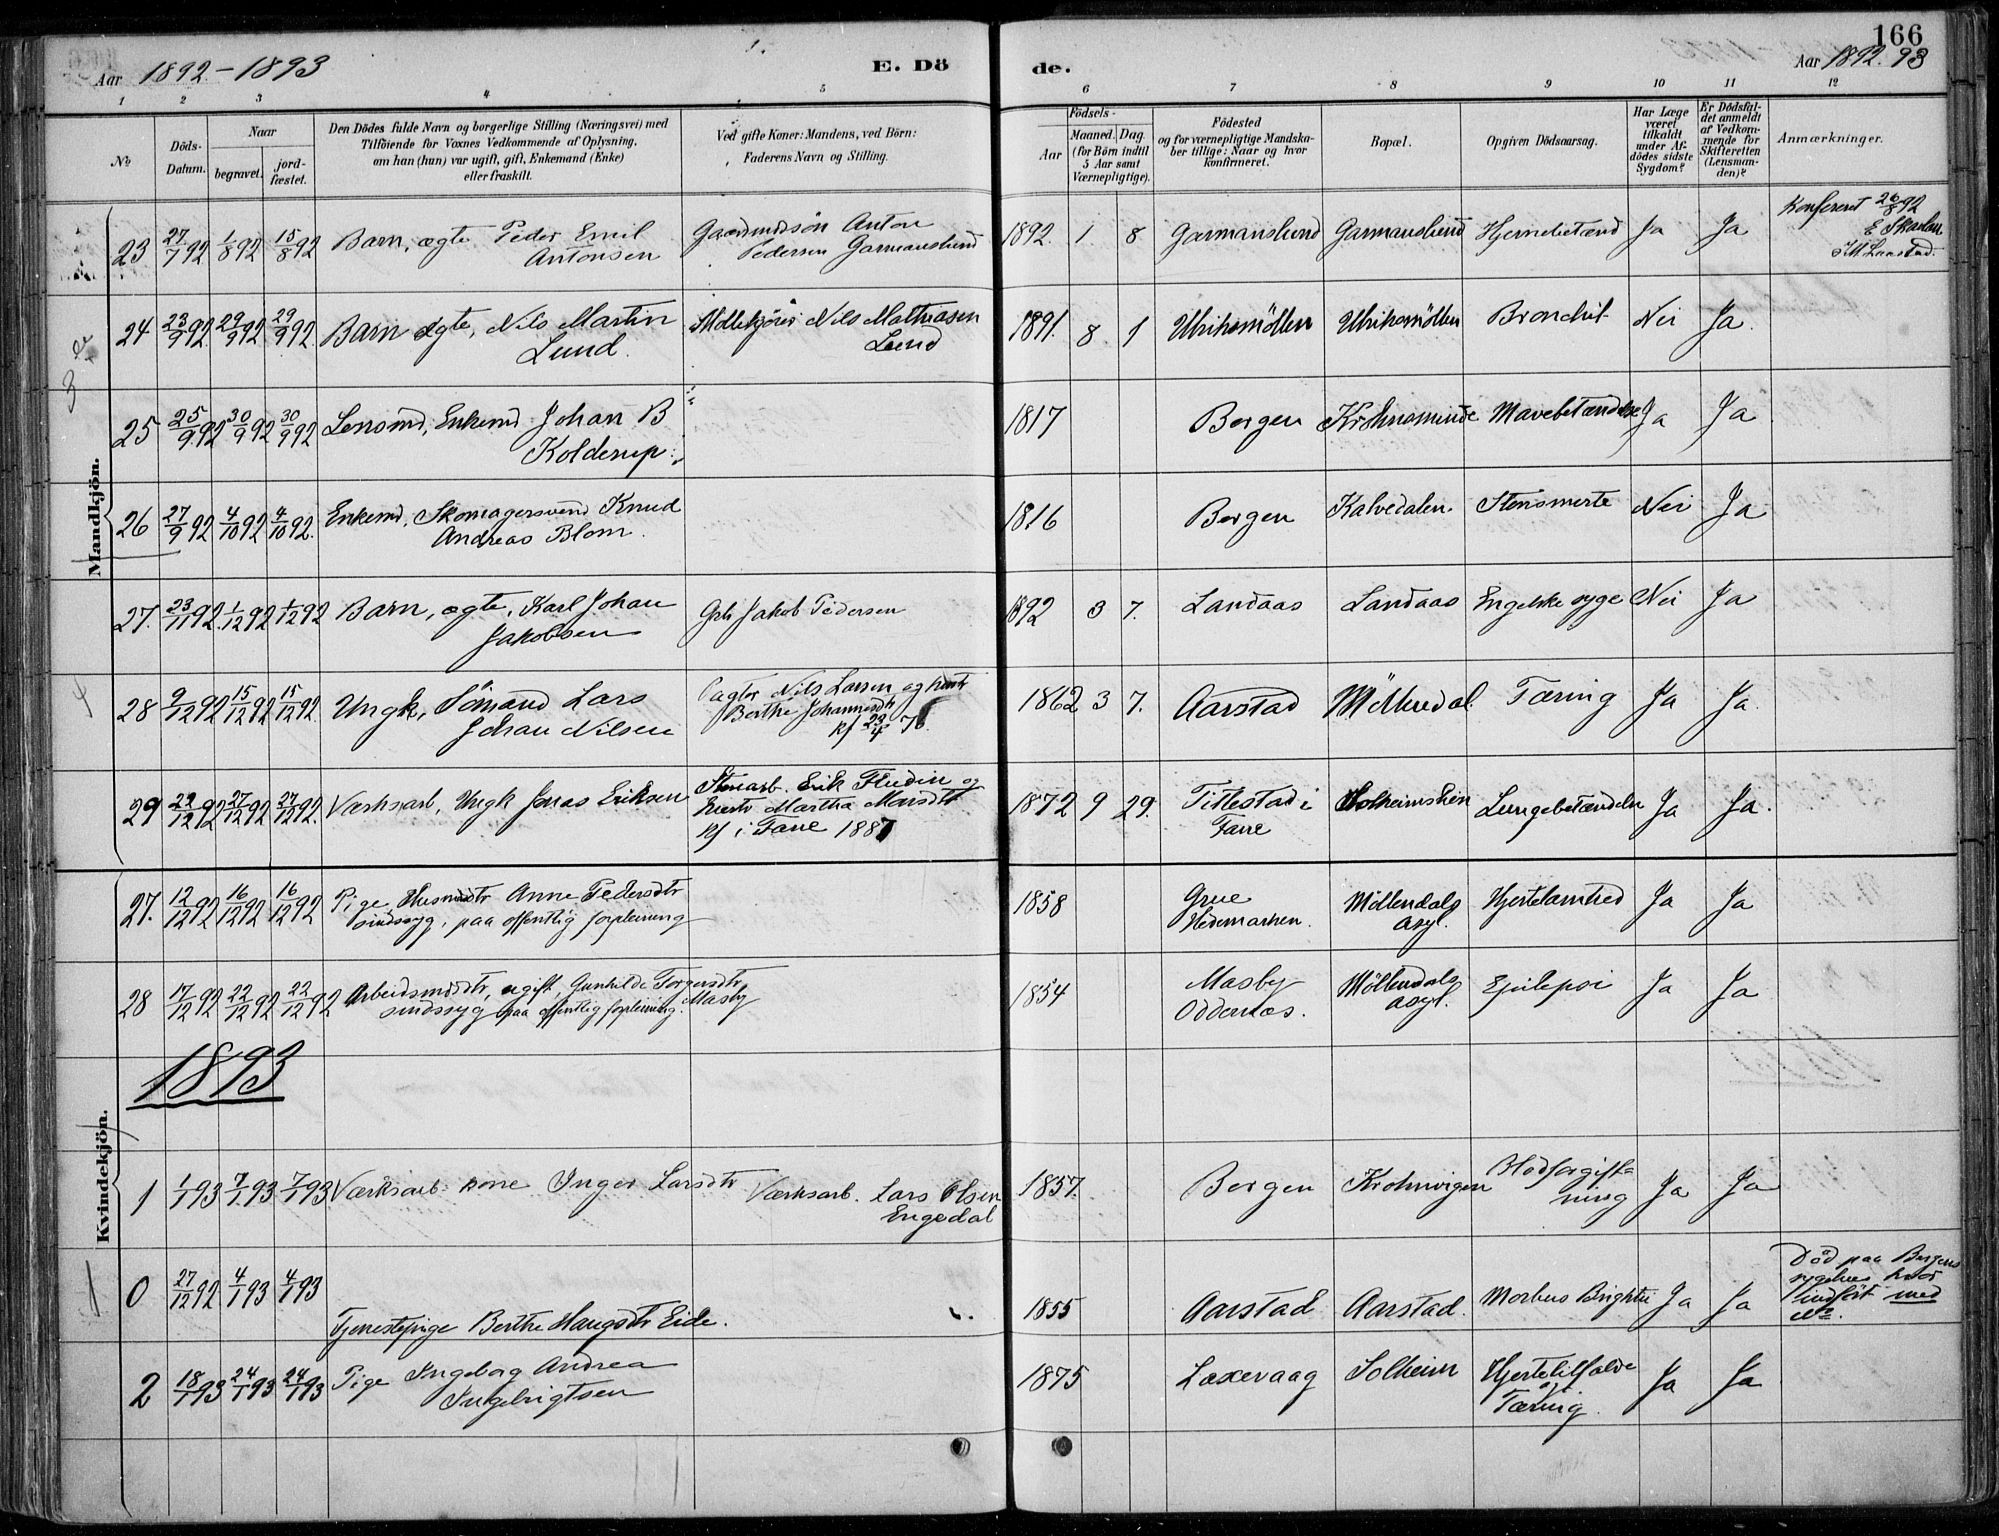 166
Aar 1892-1893
E. Dö
de.
Aar 1892. 93
1 2 3 4 5 6 7 8 9 10 11 12
No
Döds-
Datum.
Naar
begravet.
jord-
fæstet.
Den Dödes fulde Navn og borgerlige Stilling (Næringsvei) med
Tilföiende for Voxnes Vedkommende af Oplysning.
om han (hun) var ugift, gift, Enkemand (Enke)
eller fraskilt.
Ved gifte Koner: Mandens, ved Börn:
Faderens Navn og Stilling.
Födsels-
Aar
Maaned. Dag.
(for Börn indtil
5 Aar samt
Værnepligtige).
Födested
og for værnepligtige Mandska-
ber tillige: Naar og hvor
konfirmeret.
Bopæl.
Opgiven Dödsaarsag.
Har Læge
været
tilkaldt
under Af-
dödes sidste
Sygdom?
Er Dödsfal-
det anmeldt
af Vedkom-
mende for
Skifteretten
(Lensman-
den)?
Anmærkninger.
Mandkjön.
23 27/7 92 1/8 92 15/8 92 Barn, ægte Peder Emil
Antonsen
Gaardmandssön Anton
Pedersen Garmanslund
1892. 1 8 Garmanslund Garmanslund Hjernebetænd Ja Ja
Konfereret 26/8 92
24 23/9 92 29/9 92 29/9 92. Barn ægte, Nils Martin
Lund.
Möllekjörer Nils Mathiasen
Lund
1891. 8 1 Ulriksmöllen Ulriksmöllen Bronchit Nei Ja.
25 25/9 92 30/9 92 30/9 92 Lensmd, Enkemd Johan B
Kolderup.
1817 Bergen Krohnsminde Mavebetændelse Ja Ja
26 27/9 92 4/10 92 4/10 92. Enkemd, Skomagersvend Knud
Andreas Blom.
1816 Bergen Kalvedalen. Stensmerte Nei Ja
27. 23/11 92. 1/12 92 1/12 92 Barn, ægte, Karl Johan
Jakobsen
Grb Jakob Pedersen
1892 3 7. Landaas Landaas Engelske syge Nei Ja
28 9/12 92 15/12 92 15/12 92. Ungk, Sömand Lars
Johan Nilsen
Pagter Nils Larsen og hustr
Berthe Johannesdtr
kf 23/4 76
1862 3 7. Aarstad Möllendal Tæring Ja Ja.
29 22/12 92 27/12 92 27/12 92. Værksarb, Ungk Jonas Eriksen
Stenarb. Erik Fludin og
hustr Martha Monsdtr
kf i Fane 1887
1872 9 29. Titlestad i
Fane
Solheimslien Lungebetændeln Ja Ja.
Kvindekjön.
27. 12/12 92 16/12 92 16/12 92 Pige Husmdsdtr Anne Pedersdtr
sindssyg, paa offentlig forpleining
1858 Grue
Hedemarken.
Möllendals
asyl.
Hjertelamhed Ja Ja
28 17/12 92 22/12 92 22/12 92 Arbeidsmdsdtr, ugift, Gunhilde Torgersdtr
sindssyg paa offentlig forpleining. Masby
1854 Masby
Oddernæs.
Möllendals
asyl.
Epilepsi Ja Ja
1893
1 1/1 93 7/1 93 7/1 93 Værksarb kone Inger Larsdtr
Værksarb. Lars Olsen
Engedal
1857. Bergen Krohnvigen Blodforgift-
ning
Ja Ja
0 27/12 92 4/1 93 4/1 93
Tjenestepige Berthe Haugsdtr Eide.
1855 Aarstad Aarstad. Morbus Brightii Ja Ja
Död paa Bergens
sygehus hvor
indfört med
No.
2 18/1 93 24/1 93 24/1 93 Pige Ingeborg Andrea
Ingebrigtsen
1875 Laxevaag Solheim Hjertetilfælde
og
Tæring.
Ja Ja